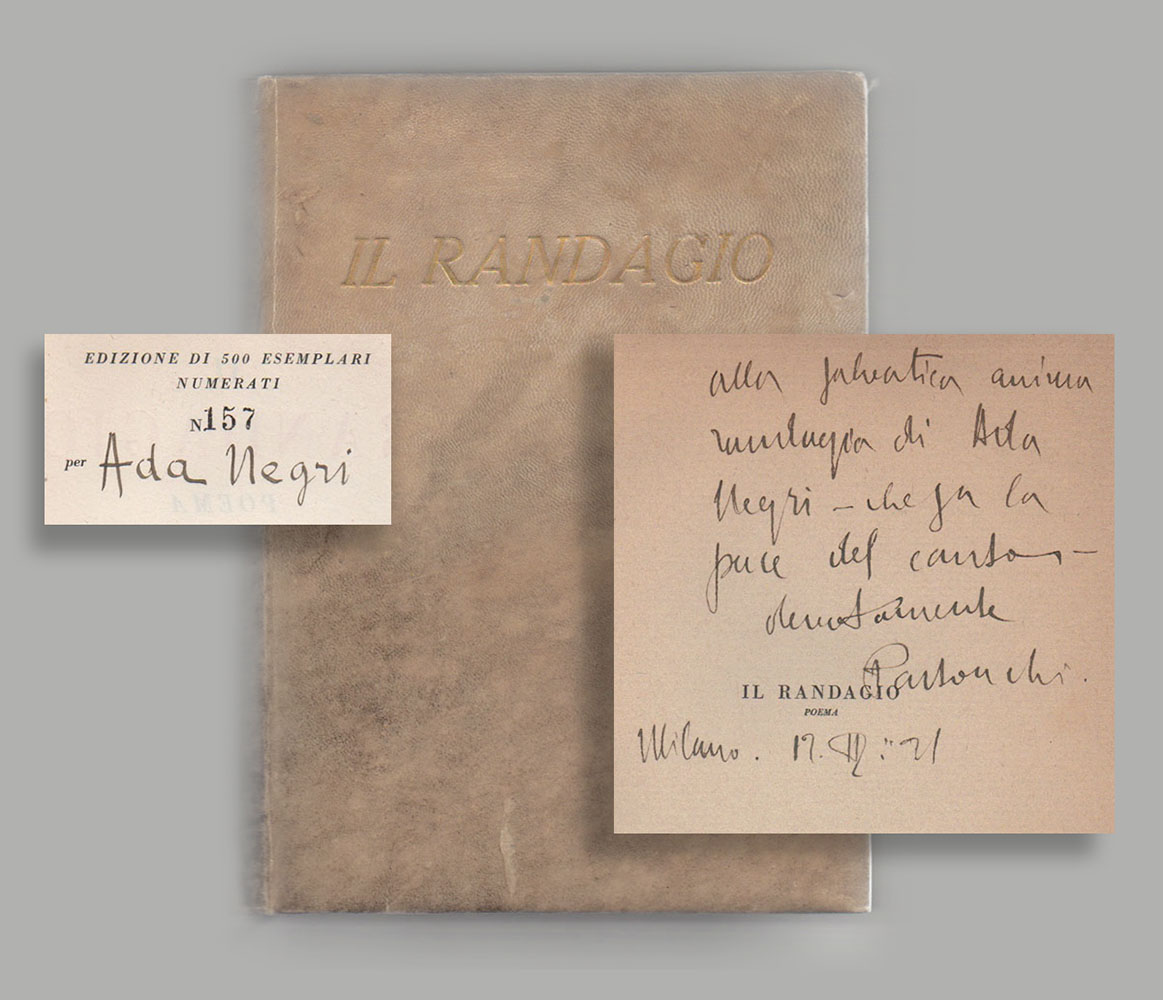 IL RANDAGIO
EDIZIONE DI 500 ESEMPLARI
NUMERATI
N. 157
per Ada Negri
POEMA
alla selvatica anima
randagia di Ada
Negri – che sa la
pace del canto –
devotamente
Pastonchi.
IL RANDAGIO
POEMA
Milano. 21